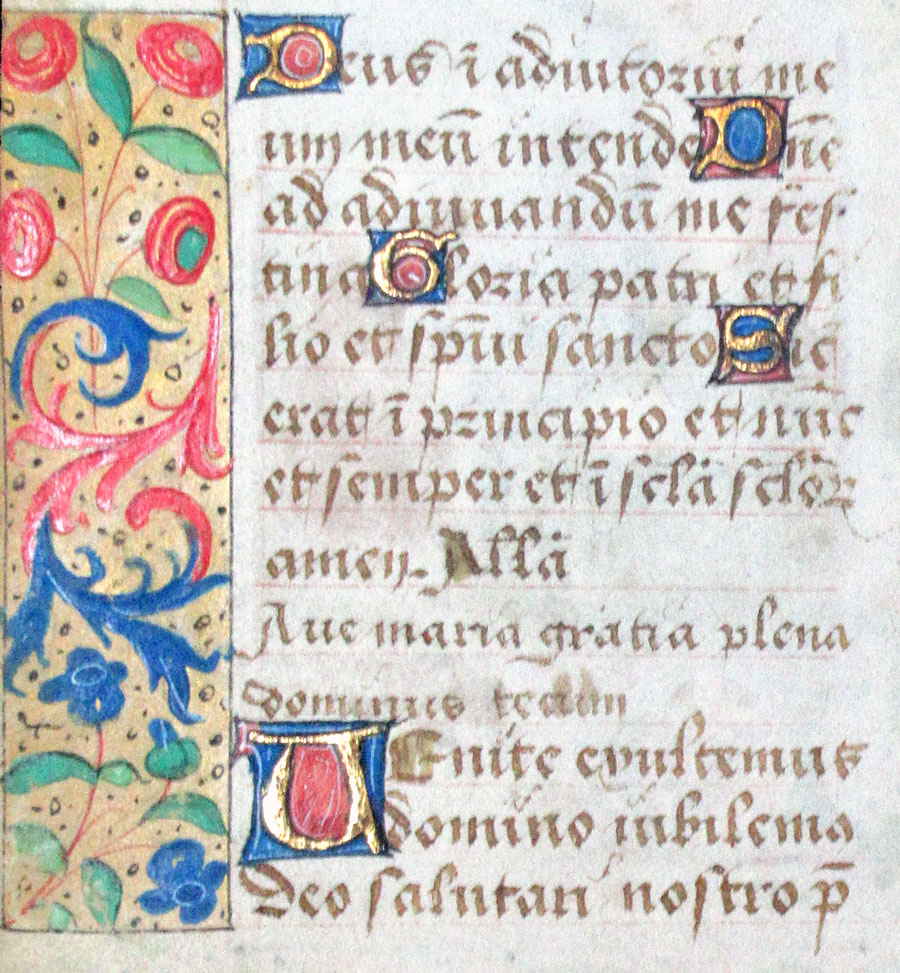 Deus ī adiutoriū me
um meū intende Dn̄e
ad adiuuandū me fes
tina Gloria patri et fi
lio et sp̄ui sancto Sic̄
erat ī principio et nūc
et semper et ī scl̄a scl̄oꝝ
amen. All̄a
Aue maria gratia plena
dominus tecum
UEnite exultemus
domino iubilemꝰ
deo salutari nostro p̄